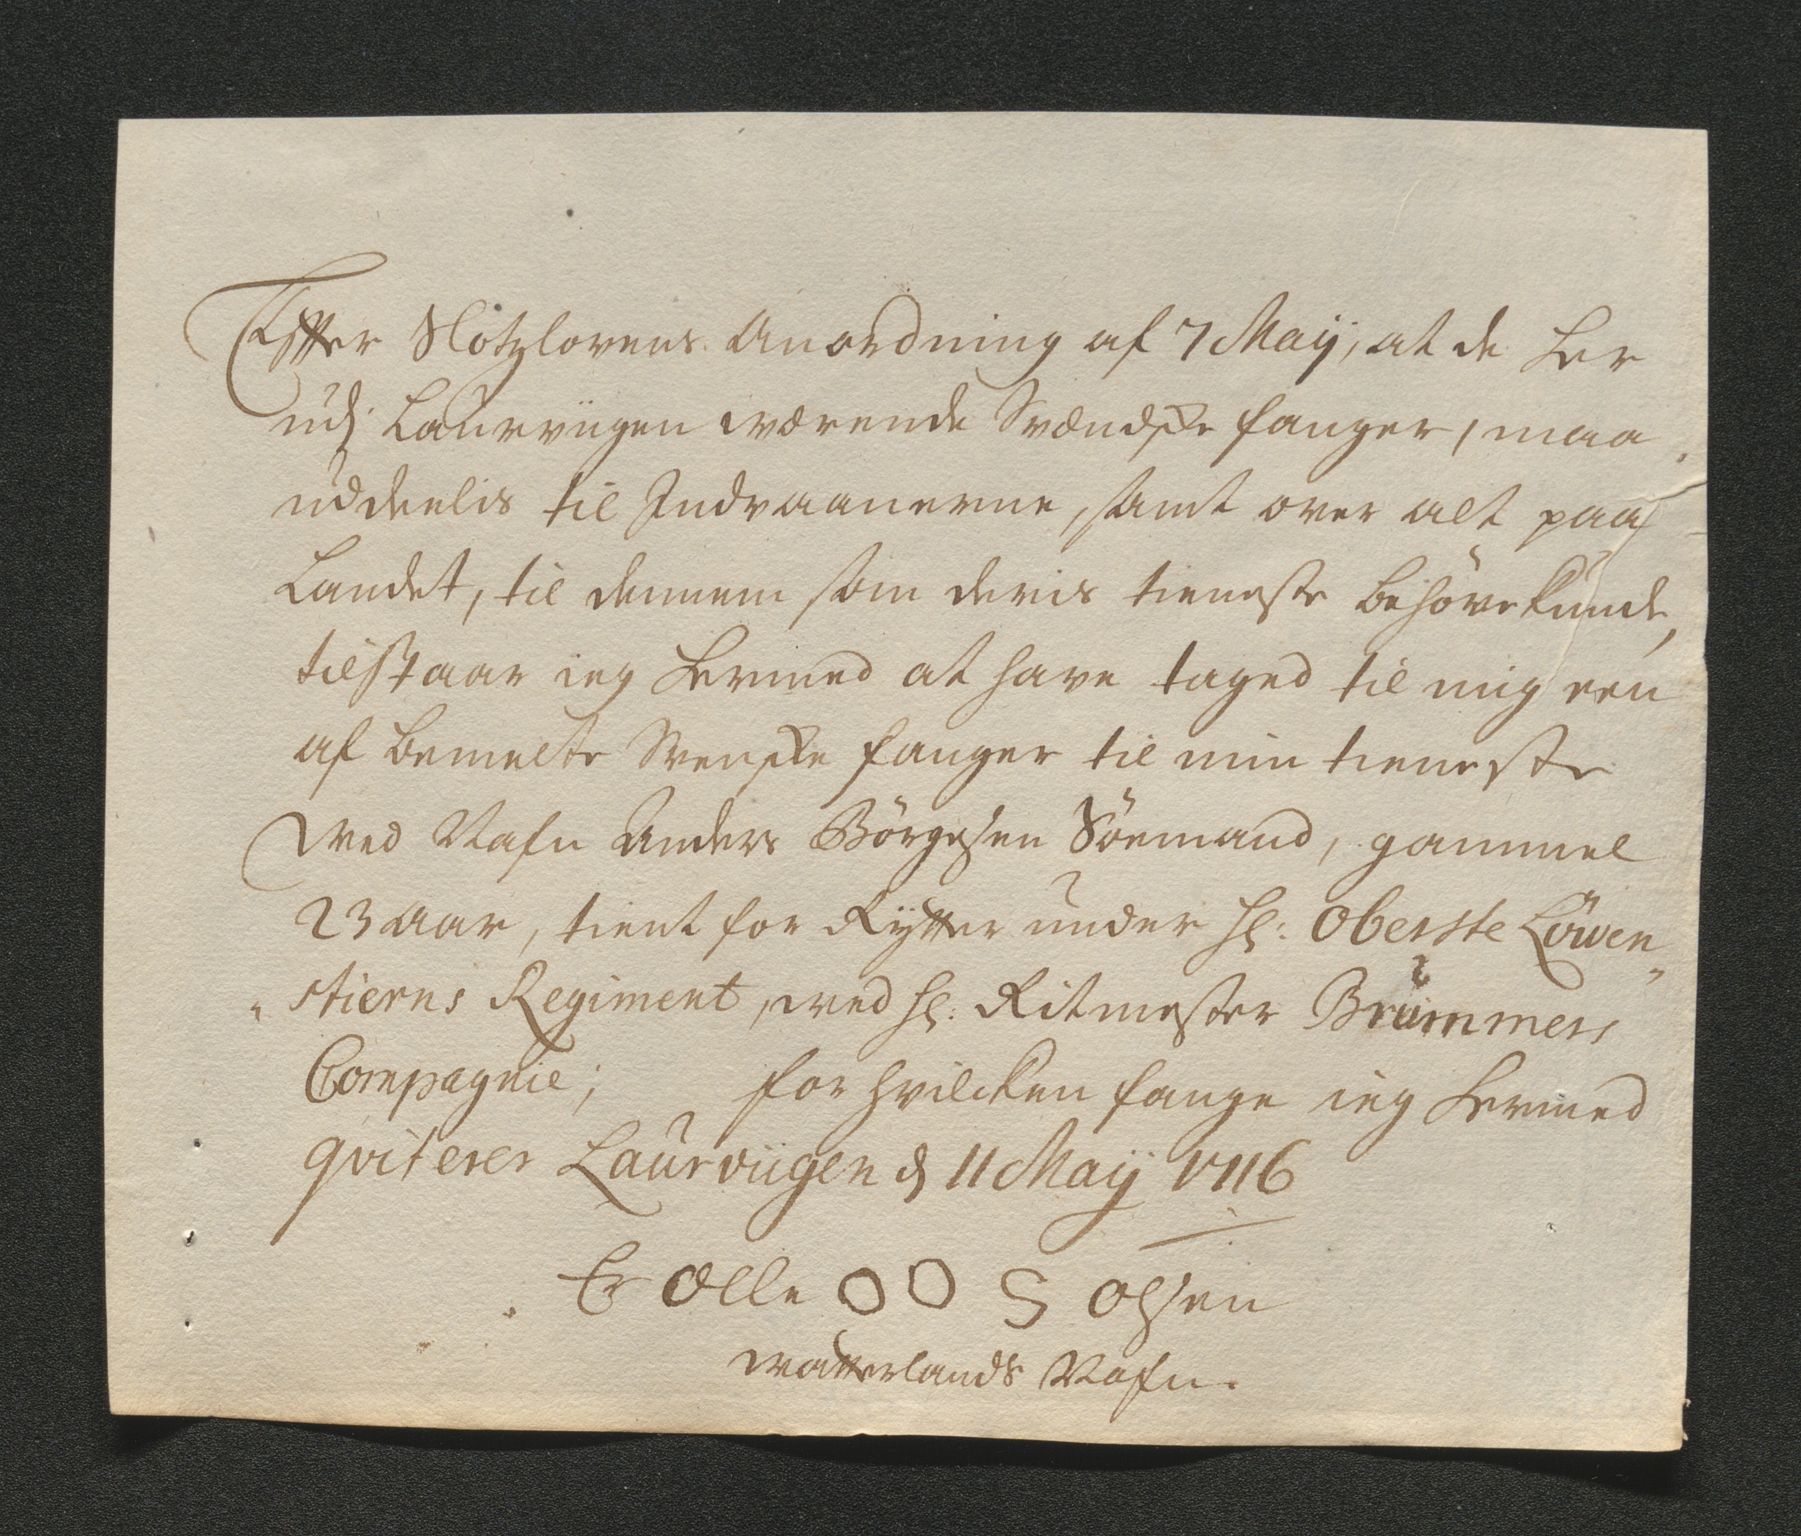 Efter Slotzlovens Anordning af 7 Maij, at de her
udj Laurviigen værende Svændske fanger, maa
uddeelis til Indvaanerne, samt over alt paa
Landet, til dennem som deris tieneste behöve kunde,
tilstaar ieg hermed at have taged til mig een
af bemelte Svenske fanger til min tieneste
ved Nafn Anders Börgesen Söemand, gammel
23 aar, tient for Rytter under hr: Oberste Löwen„
„stierns Regiment, ved hr: Ritmester Brummers
Compagnie; for hvilcken fange ieg hermed
qviterer Laurviigen d 11 Maij 1716
Olle O O S Olsen
Watterlands Nafn.